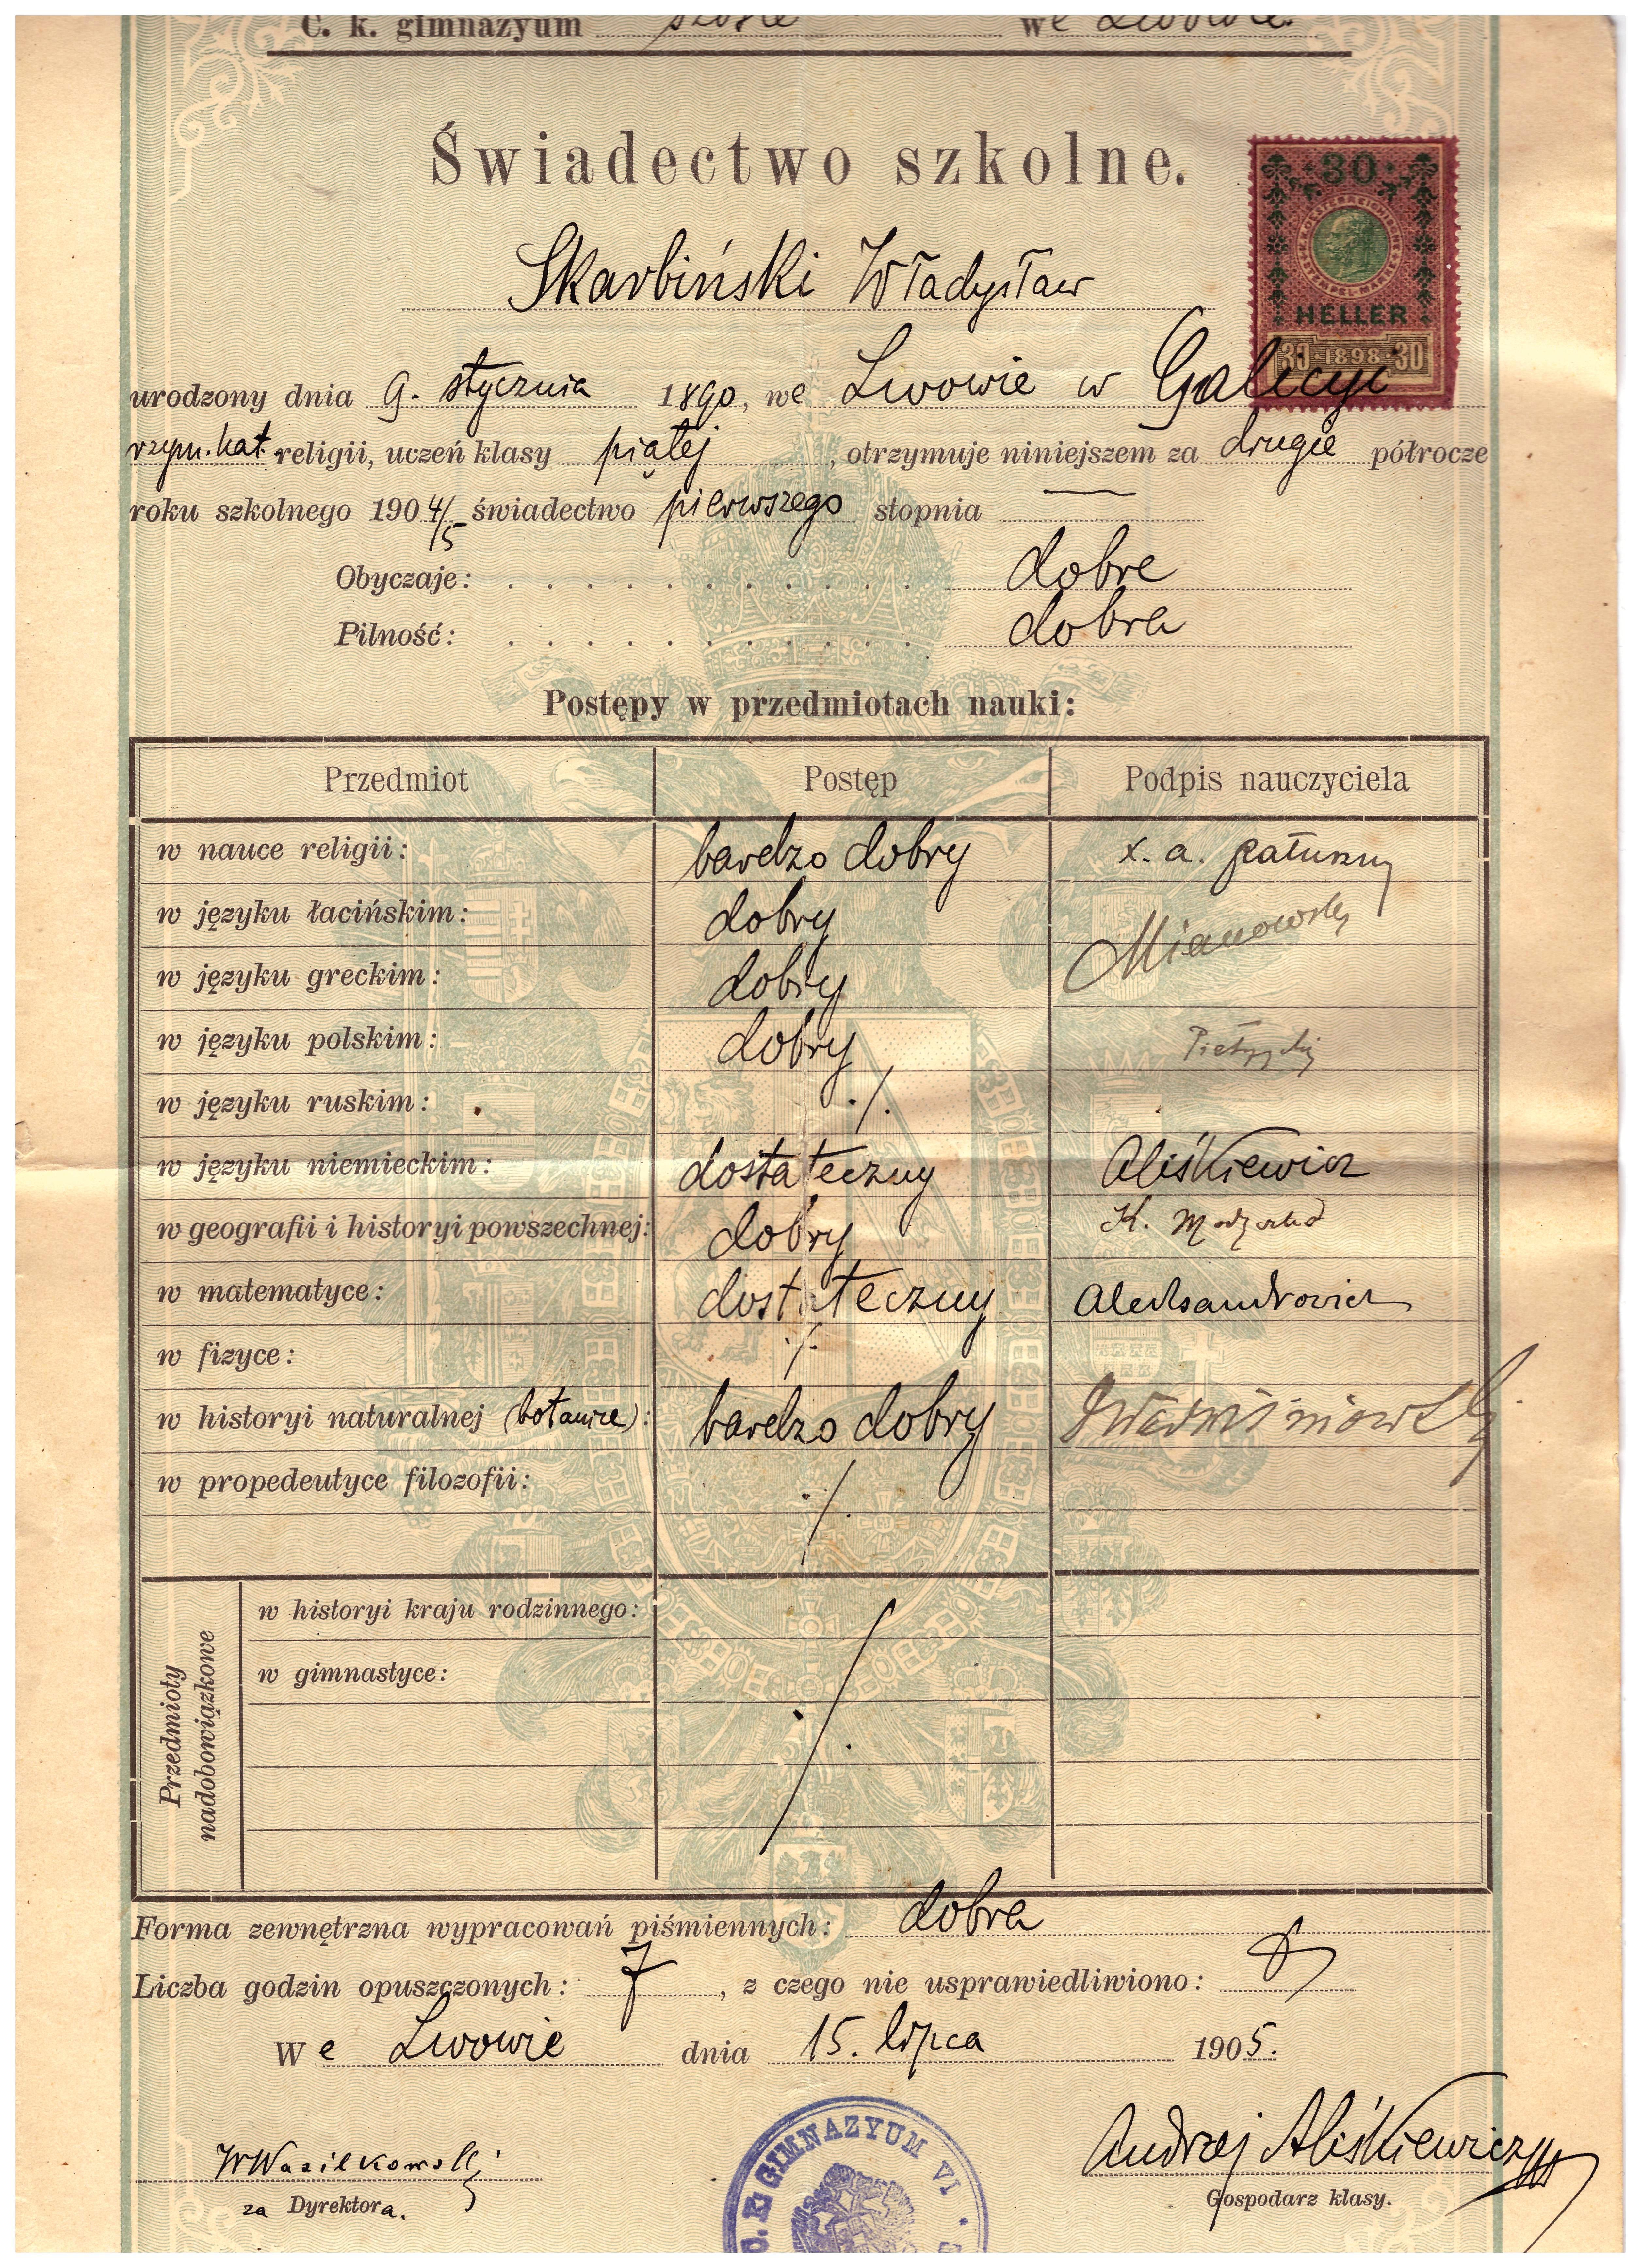 C. k. gimnazyum szóste we Lwowie.
Świadectwo szkolne.
30
HELLER
30 · 1898 · 30
Skarbiński Władysław
urodzony dnia 9. stycznia 1890, we Lwowie w Galicyi
rzym. kat. religii, uczeń klasy piątej, otrzymuje niniejszem za drugie półrocze
roku szkolnego 1904/5 świadectwo pierwszego stopnia —
Obyczaje: . . . . . . . . . . . . dobre
Pilność: . . . . . . . . . . . . dobra
Postępy w przedmiotach nauki:
Przedmiot Postęp Podpis nauczyciela
w nauce religii: bardzo dobry x. a.
w języku łacińskim: dobry Mianowski
w języku greckim: dobry
w języku polskim: dobry
w języku ruskim: ./.
w języku niemieckim: dostateczny Aliśkiewicz
w geografii i historyi powszechnej: dobry K.
w matematyce: dostateczny Aleksandrowicz
w fizyce: ./.
w historyi naturalnej (botanice): bardzo dobry
w propedeutyce filozofii: ./.
Przedmioty nadobowiązkowe
w historyi kraju rodzinnego: ./.
w gimnastyce:
Forma zewnętrzna wypracowań piśmiennych: dobra
Liczba godzin opuszczonych: 7, z czego nie usprawiedliwiono:
We Lwowie dnia 15. lipca 1905.
C. K. GIMNAZYUM VI
W Wasilkowski
za Dyrektora.
Andrzej Aliśkiewicz
Gospodarz klasy.